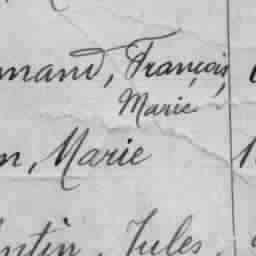 mand, François,
Marie
n, Marie
ntin, Jules,